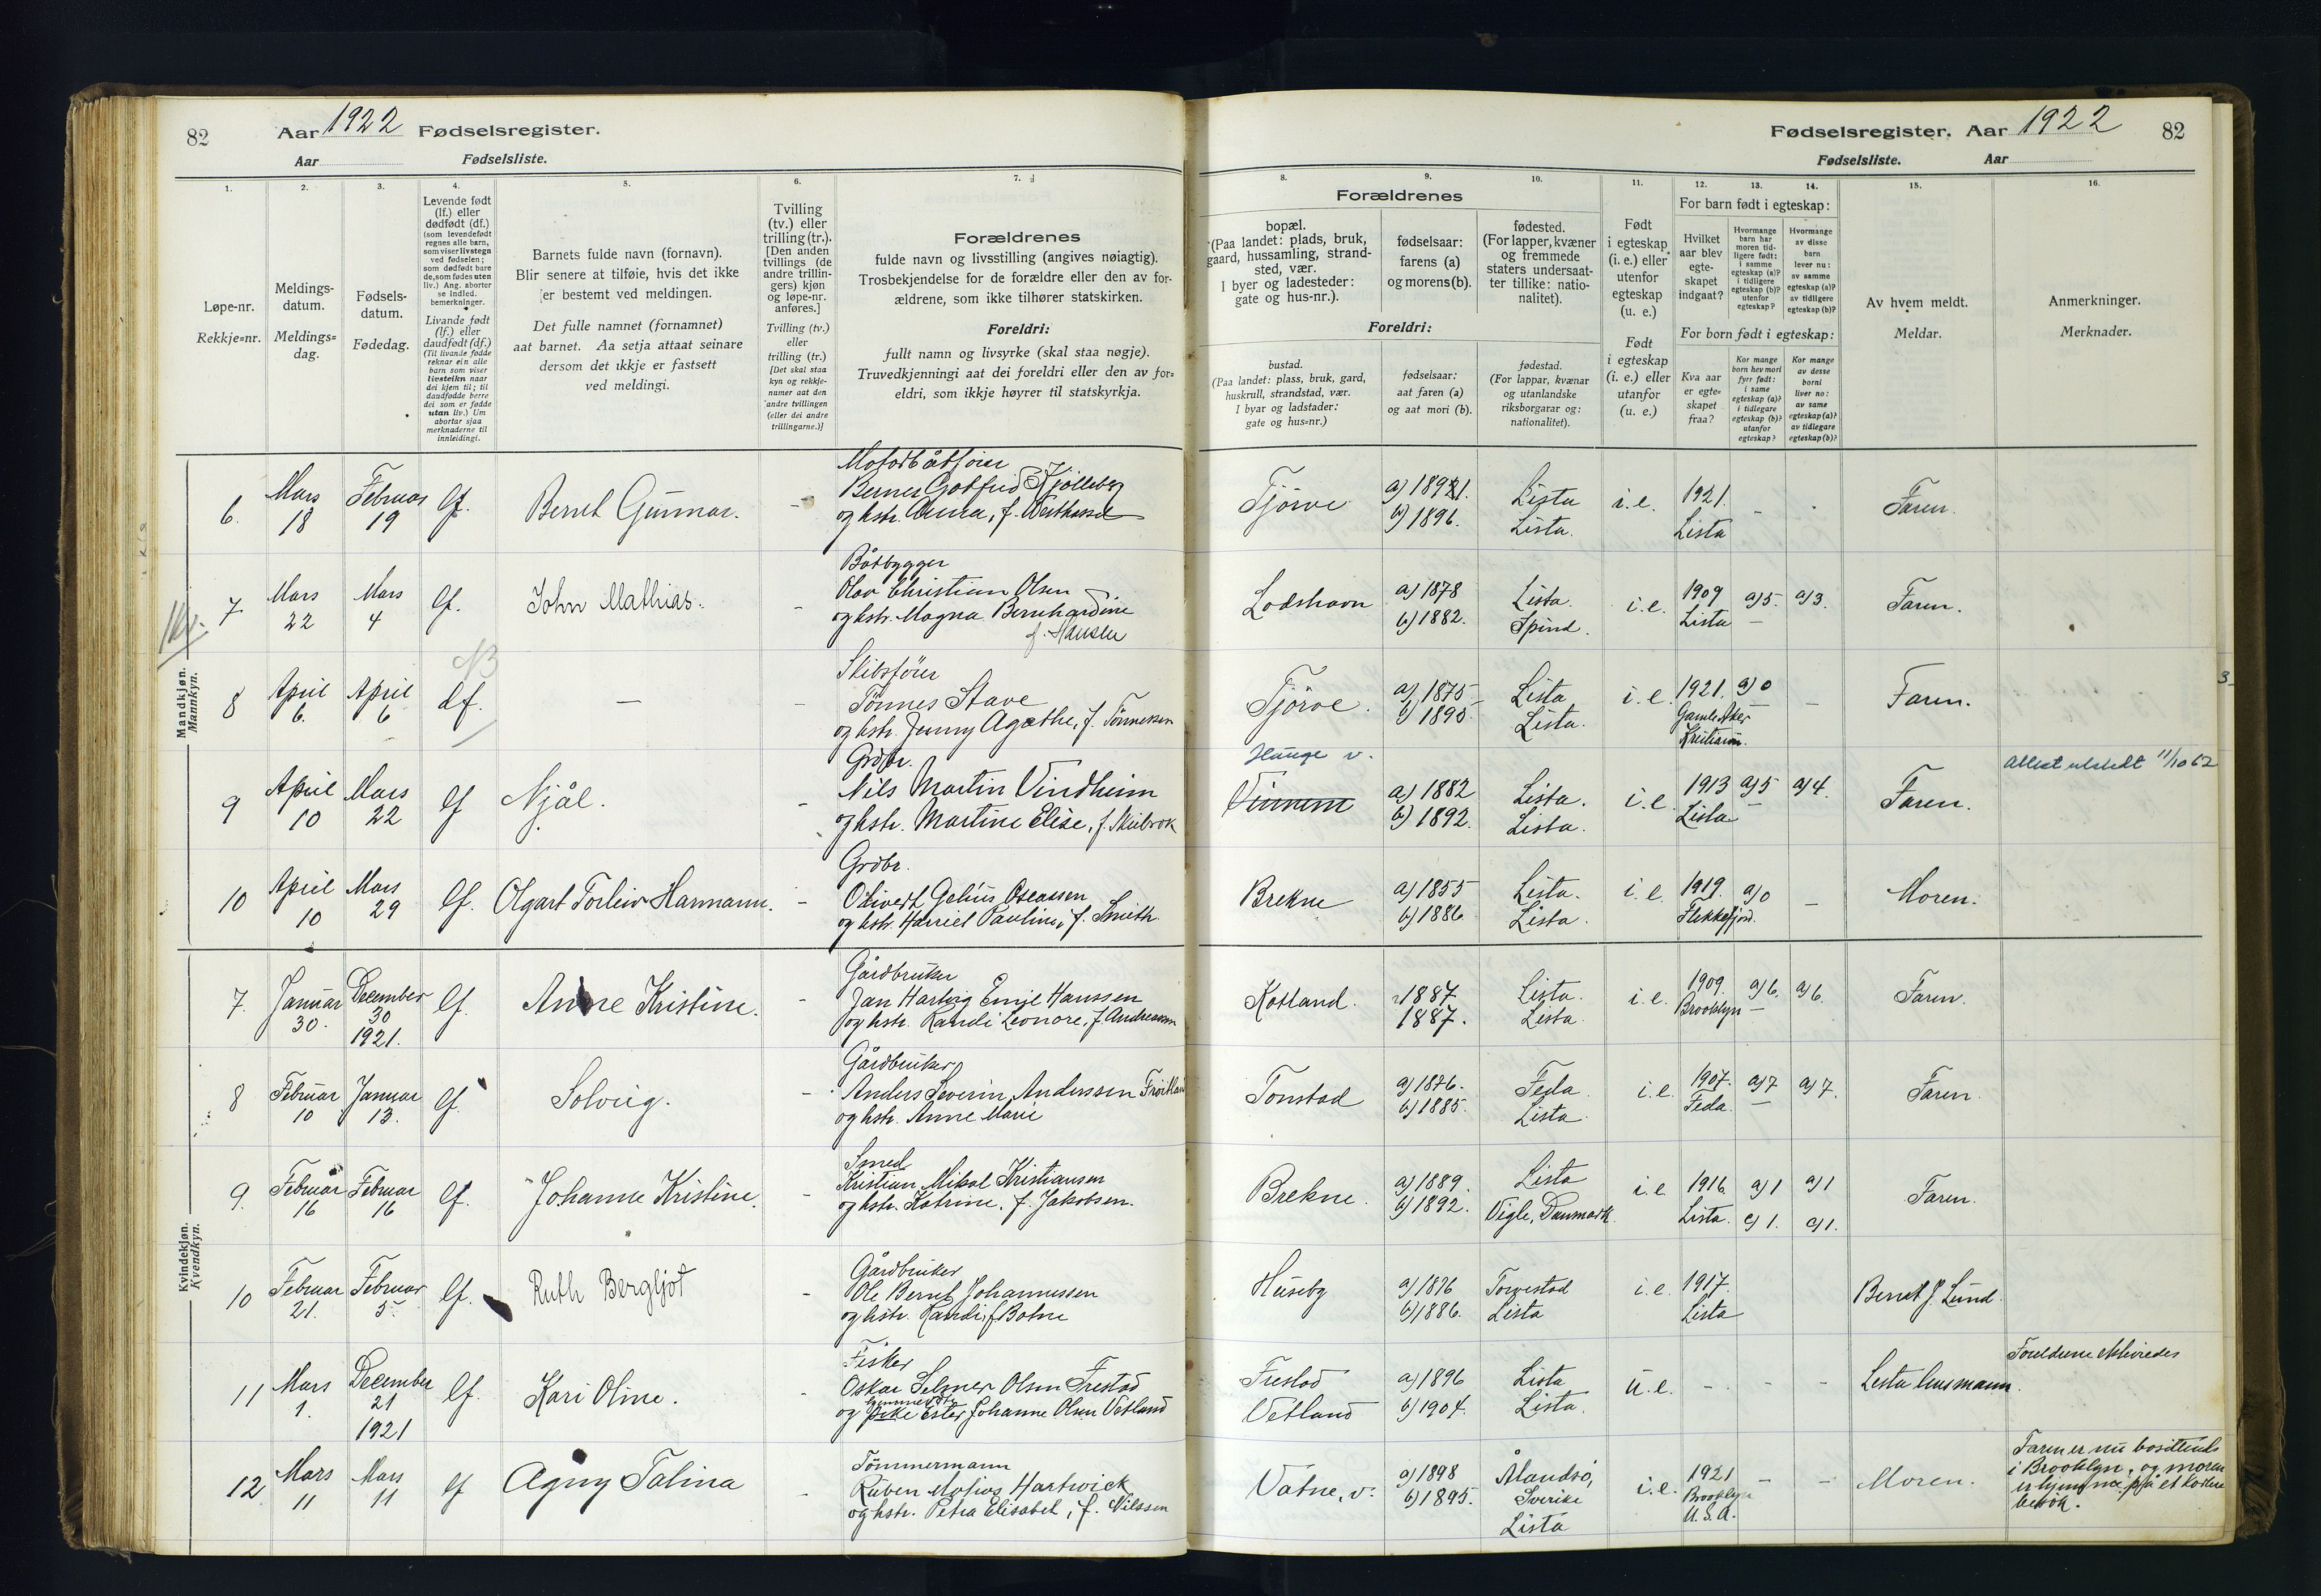 82
Aar 1922 Fødselsregister.
Aar Fødselsliste.
Fødselsregister. Aar 1922
82
Fødselsliste. Aar
1.
Løpe-nr.
Rekkje=nr.
2.
Meldings-
datum.
Meldings=
dag.
3.
Fødsels-
datum.
Fødedag.
4.
Levende født
(lf.) eller
dødfødt (df.)
(som levendefødt
regnes alle barn,
som viser livstegn
ved fødselen;
som dødfødt bare
de, som fødes uten
liv.) Ang. aborter
se indled.
bemerkninger.
Livande født
(lf.) eller
daudfødt (df.)
(Til livande fødde
reknar ein alle
barn som viser
livsteikn naar
dei kjem til; til
daudfødde berre
dei som er fødde
utan liv.) Um
abortar sjaa
merknaderne til
innleidingi.
5.
Barnets fulde navn (fornavn).
Blir senere at tilføie, hvis det ikke
er bestemt ved meldingen.
Det fulle namnet (fornamnet)
aat barnet. Aa setja attaat seinare
dersom det ikkje er fastsett
ved meldingi.
6.
Tvilling
(tv.) eller
trilling (tr.).
[Den anden
tvillings (de
andre trillin-
gers) kjøn
og løpe-nr.
anføres.]
Tvilling (tv.)
eller
trilling (tr.)
[Det skal staa
kyn og rekkje-
numer aat den
andre tvillingen
(eller dei andre
trillingarne.)]
7.
Forældrenes
fulde navn og livsstilling (angives nøiagtig).
Trosbekjendelse for de forældre eller den av for-
ældrene, som ikke tilhører statskirken.
Foreldri:
fullt namn og livsyrke (skal staa nøgje).
Truvedkjenningi aat dei foreldri eller den av for=
eldri, som ikkje høyrer til statskyrkja.
Forældrenes
8.
bopæl.
(Paa landet: plads, bruk,
gaard, hussamling, strand-
sted, vær.
I byer og ladesteder:
gate og hus-nr.).
9.
fødselsaar:
farens (a)
og morens (b).
10.
fødested.
(For lapper, kvæner
og fremmede
staters undersaat-
ter tillike: natio-
nalitet).
Foreldri:
bustad.
(Paa landet: plass, bruk, gard,
huskrull, strandstad, vær.
I byar og ladstader:
gate og hus-nr.)
fødselsaar:
aat faren (a)
og aat mori (b).
fødestad.
(For lappar, kvænar
og utanlandske
riksborgarar og:
nationalitet).
11.
Født
i egteskap
(i. e.) eller
utenfor
egteskap
(u. e.)
Født
i egteskap
(i. e.) eller
utanfor
(u. e.)
12. 13. 14.
For barn født i egteskap:
Hvilket
aar blev
egte-
skapet
indgaat?
Hvormange
barn har
moren tid-
ligere født:
i samme
egteskap (a)?
i tidligere
egteskap (b)?
utenfor
egteskap?
Hvormange
av disse
barn
lever nu:
av samme
egteskap (a)?
av tidligere
egteskap (b)?
For born født i egteskap:
Kva aar
er egte-
skapet
fraa?
Kor mange
born hev mori
fyrr født:
i same
egteskap (a)?
i tidlegare
egteskap (b)?
utanfor
egteskap?
Kor mange
av desse
borni
liver no:
av same
egteskap (a)?
av tidlegare
egteskap (b)?
15.
Av hvem meldt.
Meldar.
16.
Anmerkninger.
Merknader.
Mandkjøn.
Mannkyn.
6. Mars 18 Februar 19 lf. Bernt Gunnar. -
Motorbåtfører
Berner Gotfred Kjølleberg
og hstr. Anna, f. Westhassel
Tjörve a) 1891. b) 1896. Lista Lista. i.e. 1921. Lista - - Faren.
7 Mars 22 Mars 4 lf. John Mathias. -
Båtbygger
Olav Christian Olsen
og hstr. Magna Bernhardine
f. Hansen
Lodshavn a) 1878 b) 1882. Lista. Spind. i.e. 1909 Lista a) 5. a) 3. Faren.
8 April 6. April 6 df. - -
Skibsförer
Tönnes Stave
og hstr. Jenny Agathe, f. Tönnessen
Tjörve. a) 1875 b) 1895 Lista Lista. i.e. 1921. Gamle Aker Kristiania. a) 0 - Faren.
9 April 10 Mars 22 lf Njål. -
Grdbr.
Nils Martin Vindheim
og hstr. Martine Elise, f. Skeibrok
Hauge v.
Vinnem a) 1882 b) 1892. Lista. Lista. i.e. 1913 Lista a) 5 a) 4. Faren. Attest utstedt 11/10 62
10 April 10 Mars 29 lf. Olgart Torleiv Harmann. -
Grdbr.
Odivert Gelius Oseassen
og hstr. Harriet Pauline, f. Smith
Brekne a) 1855 b) 1886 Lista. Lista. i.e. 1919. Flekkefjord. a) 0 - Moren.
Kvindekjøn.
Kvendkyn.
7. Januar 30. December 30 1921. lf. Anne Kristine. -
Gårdbruker
Jan Hartvig Emil Hanssen
og hstr. Randi Leonore, f. Andreassen
Kotland. 1887 1887. Lista. Lista. i.e. 1909. Brooklyn a) 6. a) 6. Faren.
8 Februar 10 Januar 13. lf. Solveig. -
Gårdbruker
Anders Severin Anderssen Fröitland
og hstr. Anne Marie
Tonstad a) 1876. b) 1885. Feda Lista. i.e. 1907. Feda. a) 7 a) 7. Faren.
9. Februar 16 Februar 16 lf. Johanne Kristine. -
Smed
Kristian Mikal Kristiansen
og hstr. Katrine, f. Jakobsen.
Brekne. a) 1889. b) 1892. Lista Veigle, Danmark. i.e 1916. Lista. a) 1 a) 1 a) 1. Faren.
10 Februar 21. Februar 5 lf. Ruth Bergljot -
Gårdbruker
Ole Bernt Johannessen
og hstr. Randi, f. Botne
Huseby a) 1876 b) 1886. Torvestad Lista i.e. 1917. Lista Bernt J. Lund.
11 Mars 1. December 21 1921 lf. Kari Oline. -
Fisker
Oskar Selmer Olsen Frestad
og pike Ester Johanne Olsen Vetland
Frestad Vetland a) 1896 b) 1904. Lista Lista. u.e. - - - Lista lensmann. Foreldrene ektevi​edes
12 Mars 11 Mars 11 lf Agny Talina -
Tömmermann
Ruben Motius Hartwick
og hstr. Petra Elisabet, f. Nilssen
Vatne, v. a) 1898 b) 1895. Ålandsö, Sverike Lista i.e. 1921 Brooklyn U.S.A. - - Moren.
Faren er nu bosittende
i Brooklyn, og moren
er hjemme på et kortere
besök.